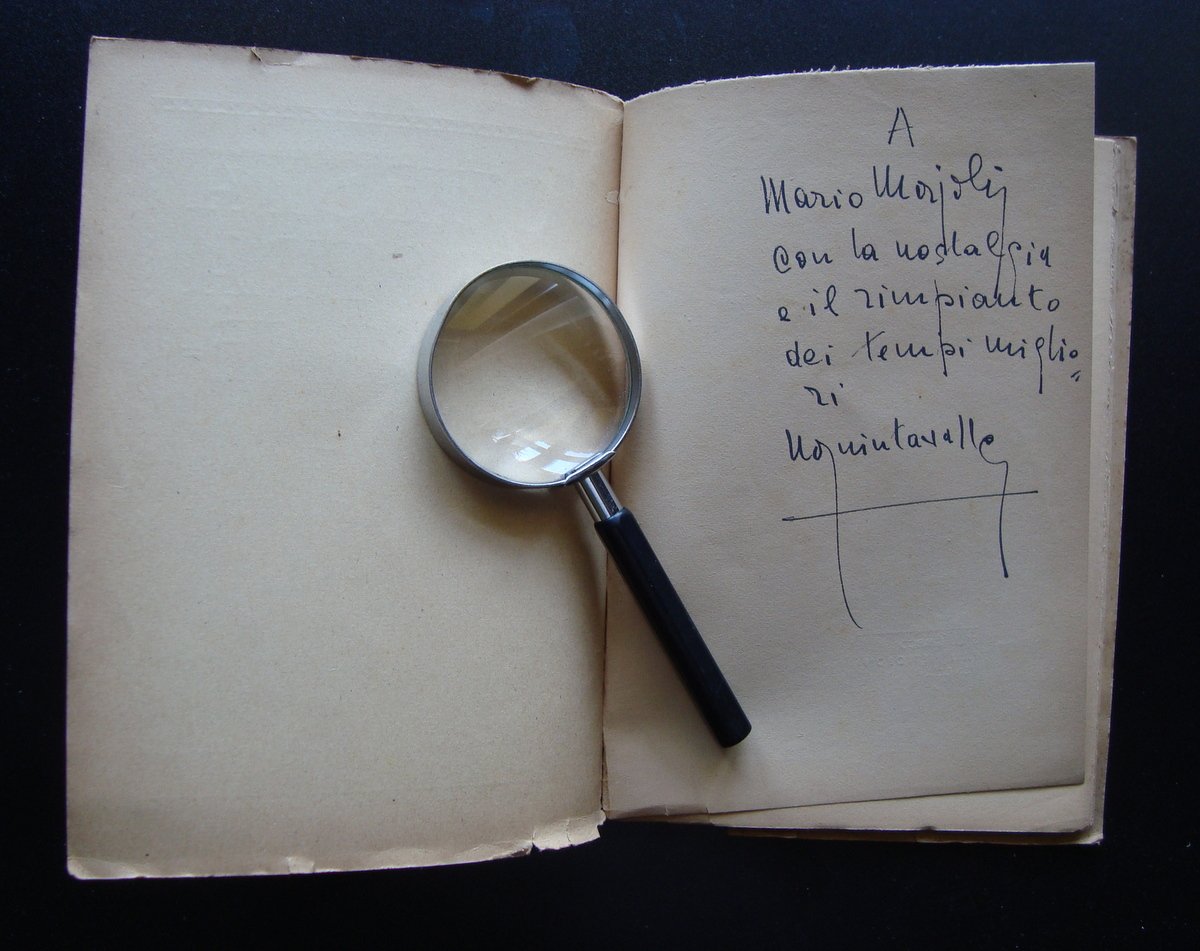 A
Mario
con la nostalgia
e il rimpianto
dei tempi miglio=
ri
UQuintavalle